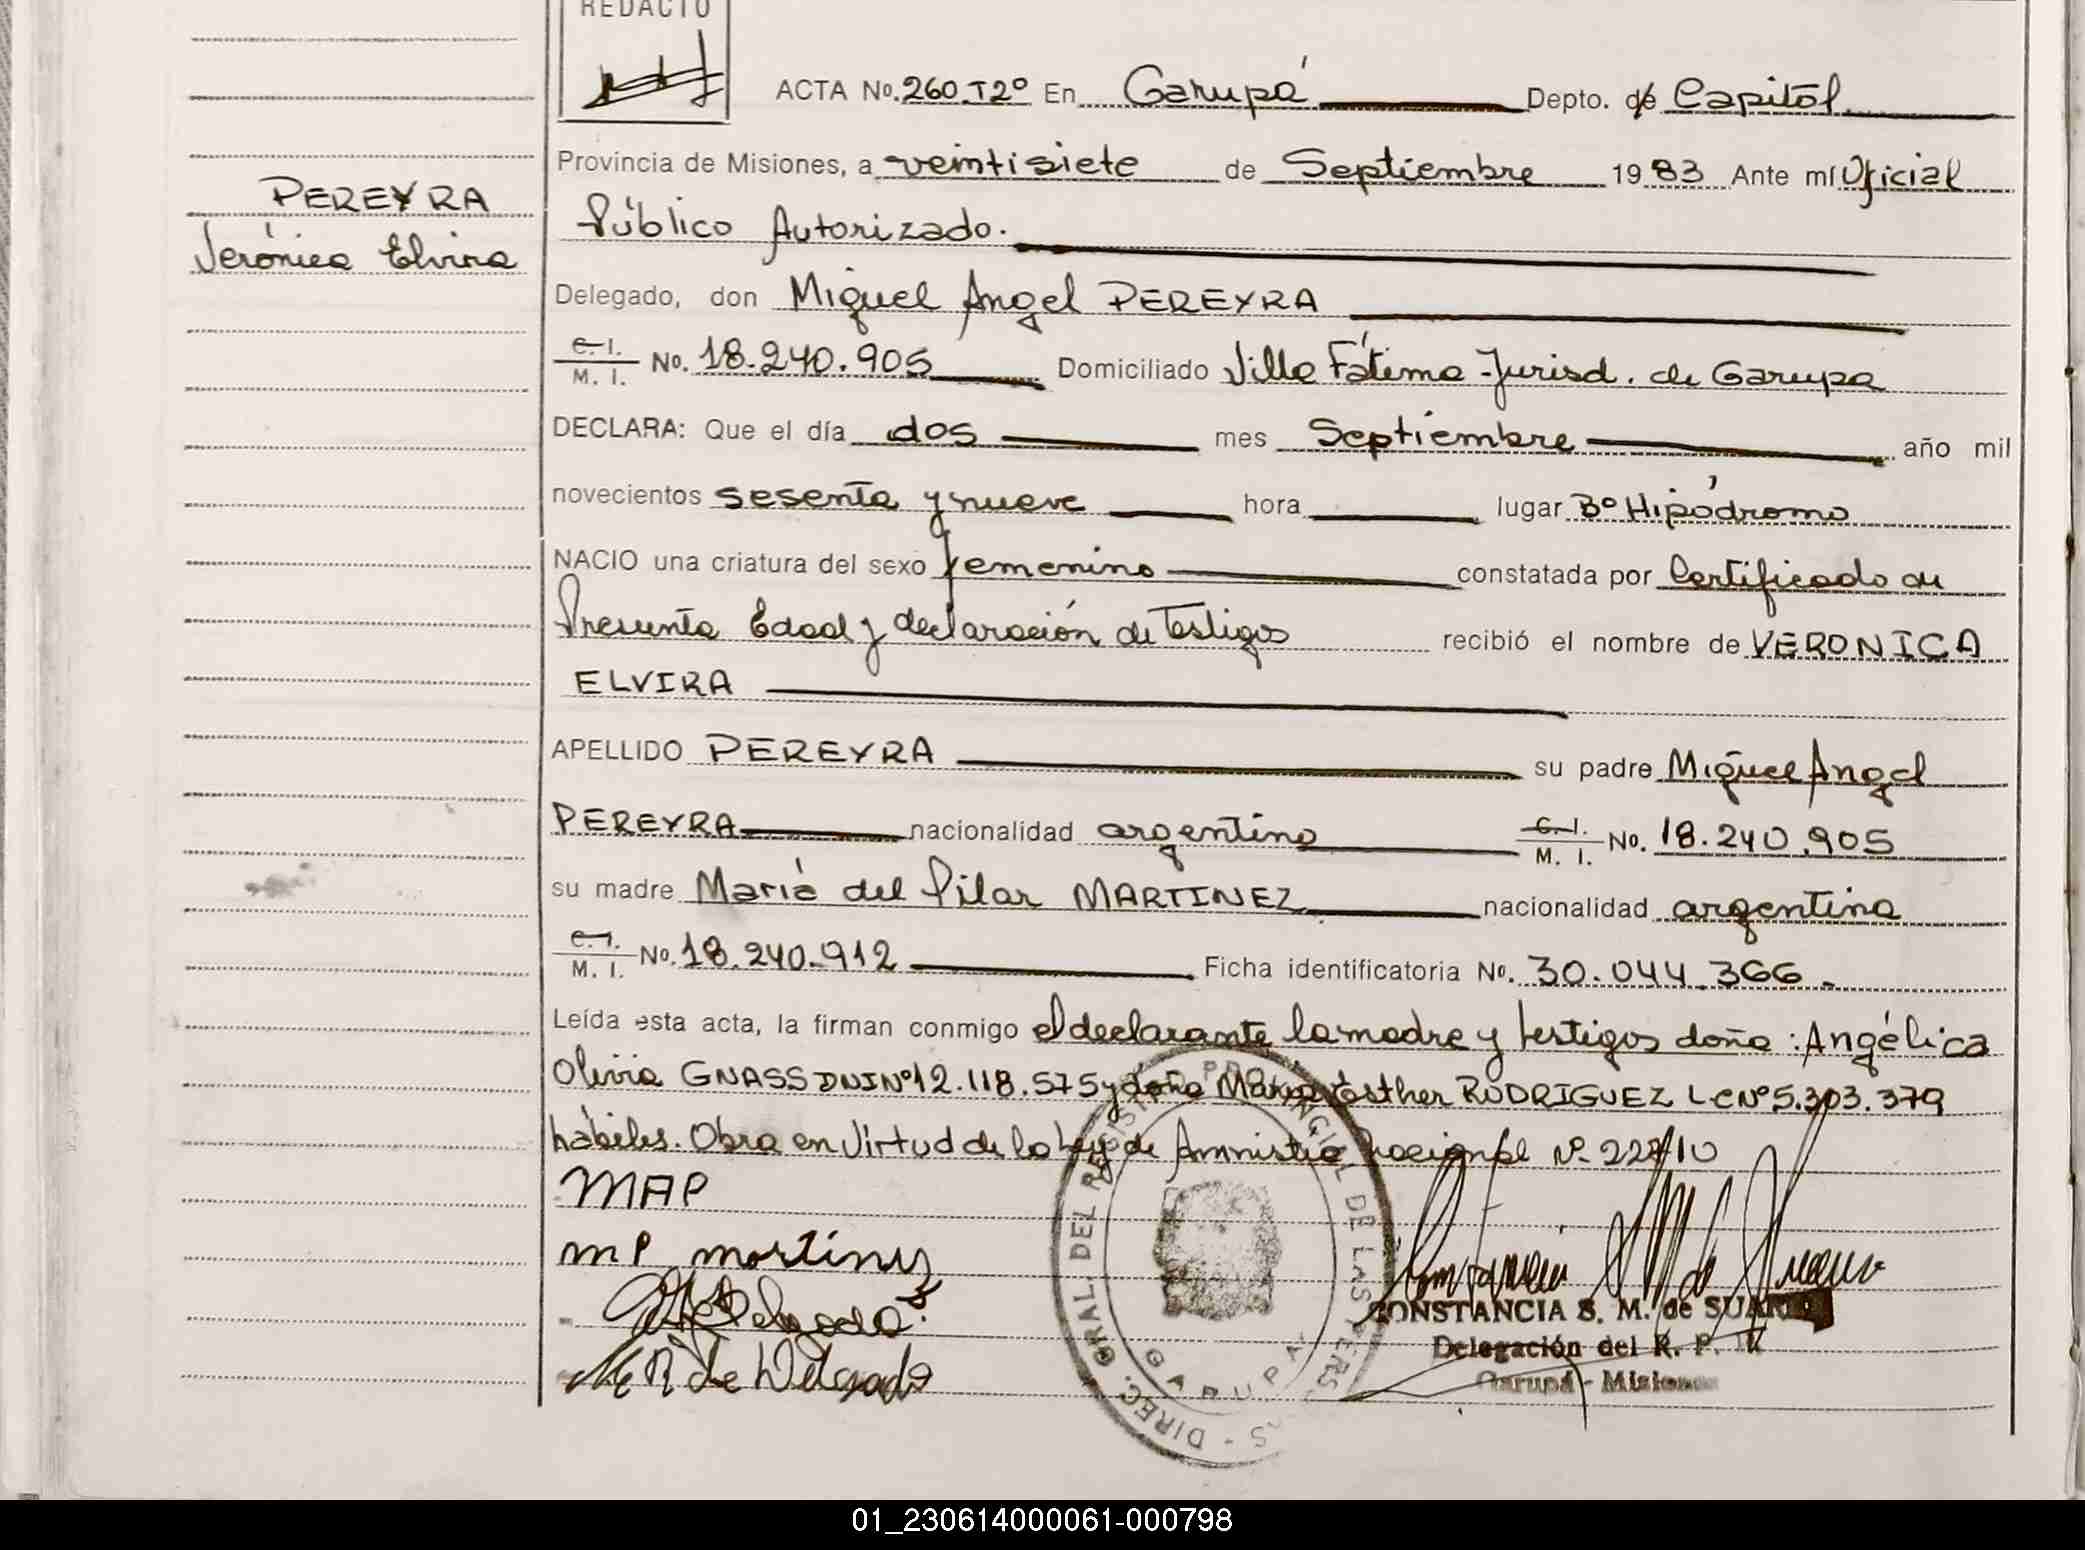 REDACTO
ACTA No. 260 T2º En Garupá Depto. de Capital
Provincia de Misiones, a veintisiete de Septiembre 1983 Ante mí Oficial
PEREYRA
Público Autorizado.
Verónica Elvira
Delegado, don Miguel Angel PEREYRA
C. I. M. I. No. 18.240.905 Domiciliado Villa Fátima - Jurisd. de Garupa
DECLARA: Que el día dos mes Septiembre año mil
novecientos sesenta y nueve hora lugar Bº Hipódromo
NACIO una criatura del sexo femenino constatada por Certificado de
Presunta Edad y declaración de Testigos recibió el nombre de VERONICA
ELVIRA
APELLIDO PEREYRA su padre Miguel Angel
PEREYRA nacionalidad argentino C. I. M. I. No. 18.240.905
su madre María del Pilar MARTINEZ nacionalidad argentina
C. I. M. I. No. 18.240.912 Ficha identificatoria No. 30.044.366.-
Leída esta acta, la firman conmigo el declarante la madre y testigos doña: Angélica
Olivia GNASS DNI Nº 12.118.575 y doña María Esther RODRIGUEZ LC Nº 5.303.379
hábiles. Obra en Virtud de la Ley de Amnistía Nacional Nº
MAP
MP Martinez
CONSTANCIA S. M. de SUAREZ
Delegación del R. P.
Garupá - Misiones
DIREC. GRAL DEL REGISTRO PROVINCIAL DE LAS PERSONAS
GARUPA
01_230614000061-000798